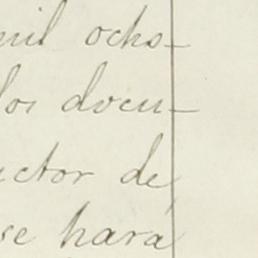 mil ocho-
los docu-
ctor de
se hará